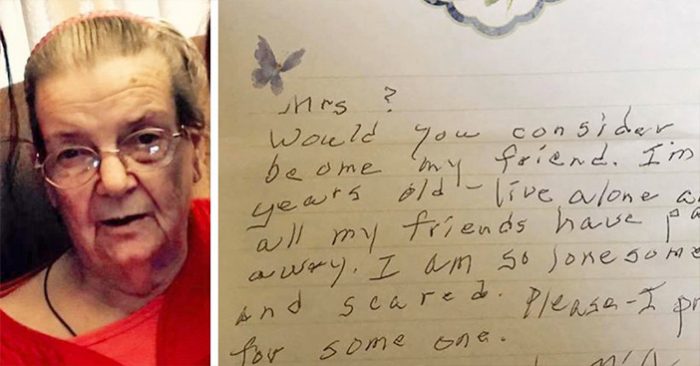 Mrs ?
Would you consider
be ome my friend. I'm
years old - live alone a
all my friends have pa
away. I am so lonesome
and scared. Please - I pr
for some one.